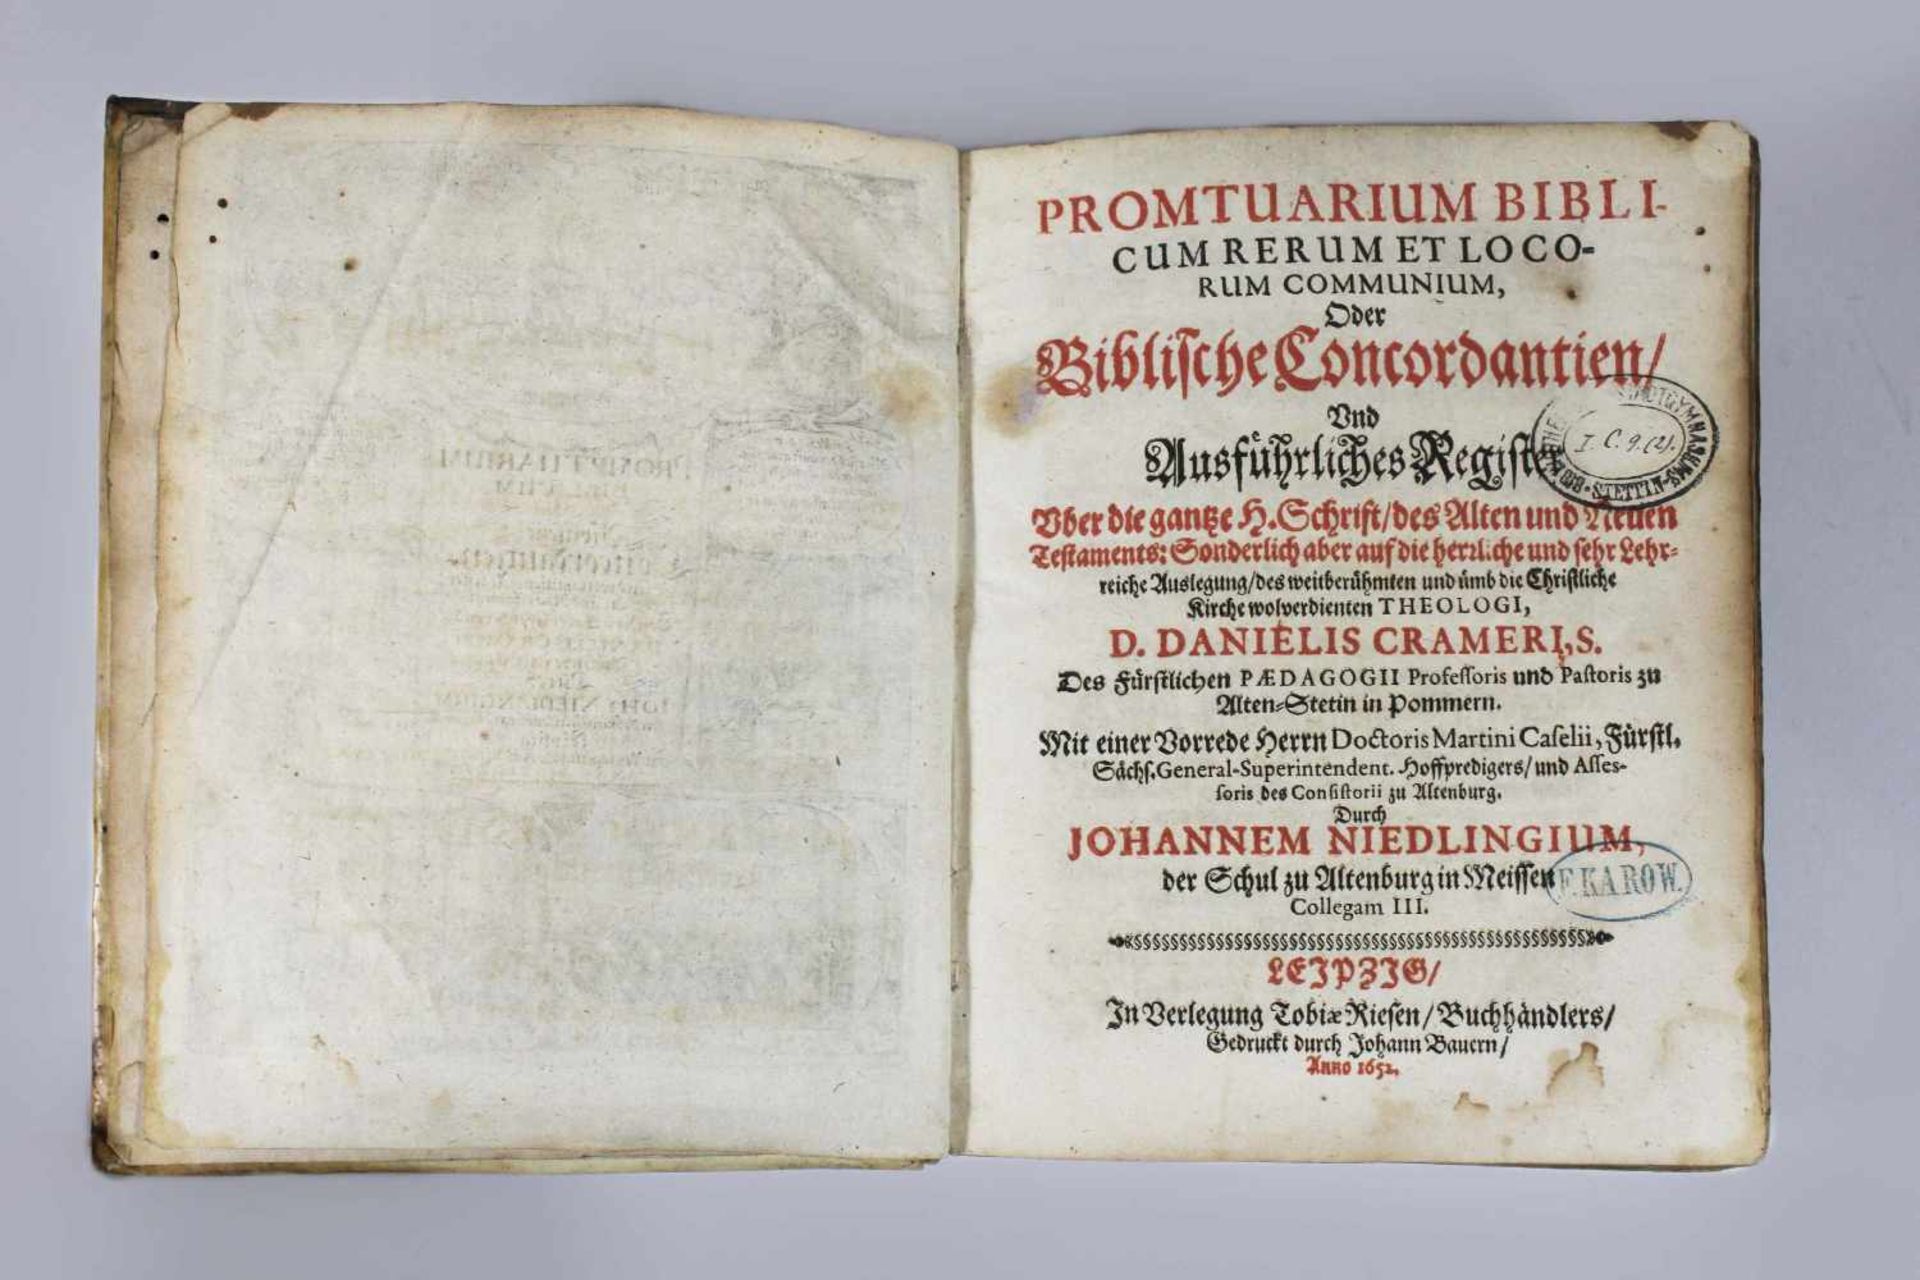 PROMTUARIUM BIBLI-
CUM RERUM ET LOCO-
RUM COMMUNIUM,
Oder
Bibliſche Concordantien/
Vnd
Ausführliches Regiſter
Vber die gantze H. Schrift/des Alten und Neuen
Teſtaments: Sonderlich aber auf die herꝛliche und ſehr Lehr-
reiche Auslegung/des weitberühmten und ümb die Chriſtliche
Kirche wolverdienten THEOLOGI,
D. DANIELIS CRAMERI, S.
Des Fürſtlichen PÆDAGOGII Profeſſoris und Paſtoris zu
Alten-Stetin in Pommern.
Mit einer Vorrede Herrn Doctoris Martini Caſelii, Fürſtl.
Sächſ. General-Superintendent. Hoffpredigers/ und Aſſeſ-
ſoris des Conſiſtorii zu Altenburg.
Durch
JOHANNEM NIEDLINGIUM,
der Schul zu Altenburg in Meiſſen
Collegam III.
LEIPZIG/
In Verlegung Tobiæ Rieſen/ Buchhändlers/
Gedruckt durch Johann Bauern/
Anno 1652.
I. C. 9. (2).
STETTIN
F. KAROW.
PROMPTUARIUM